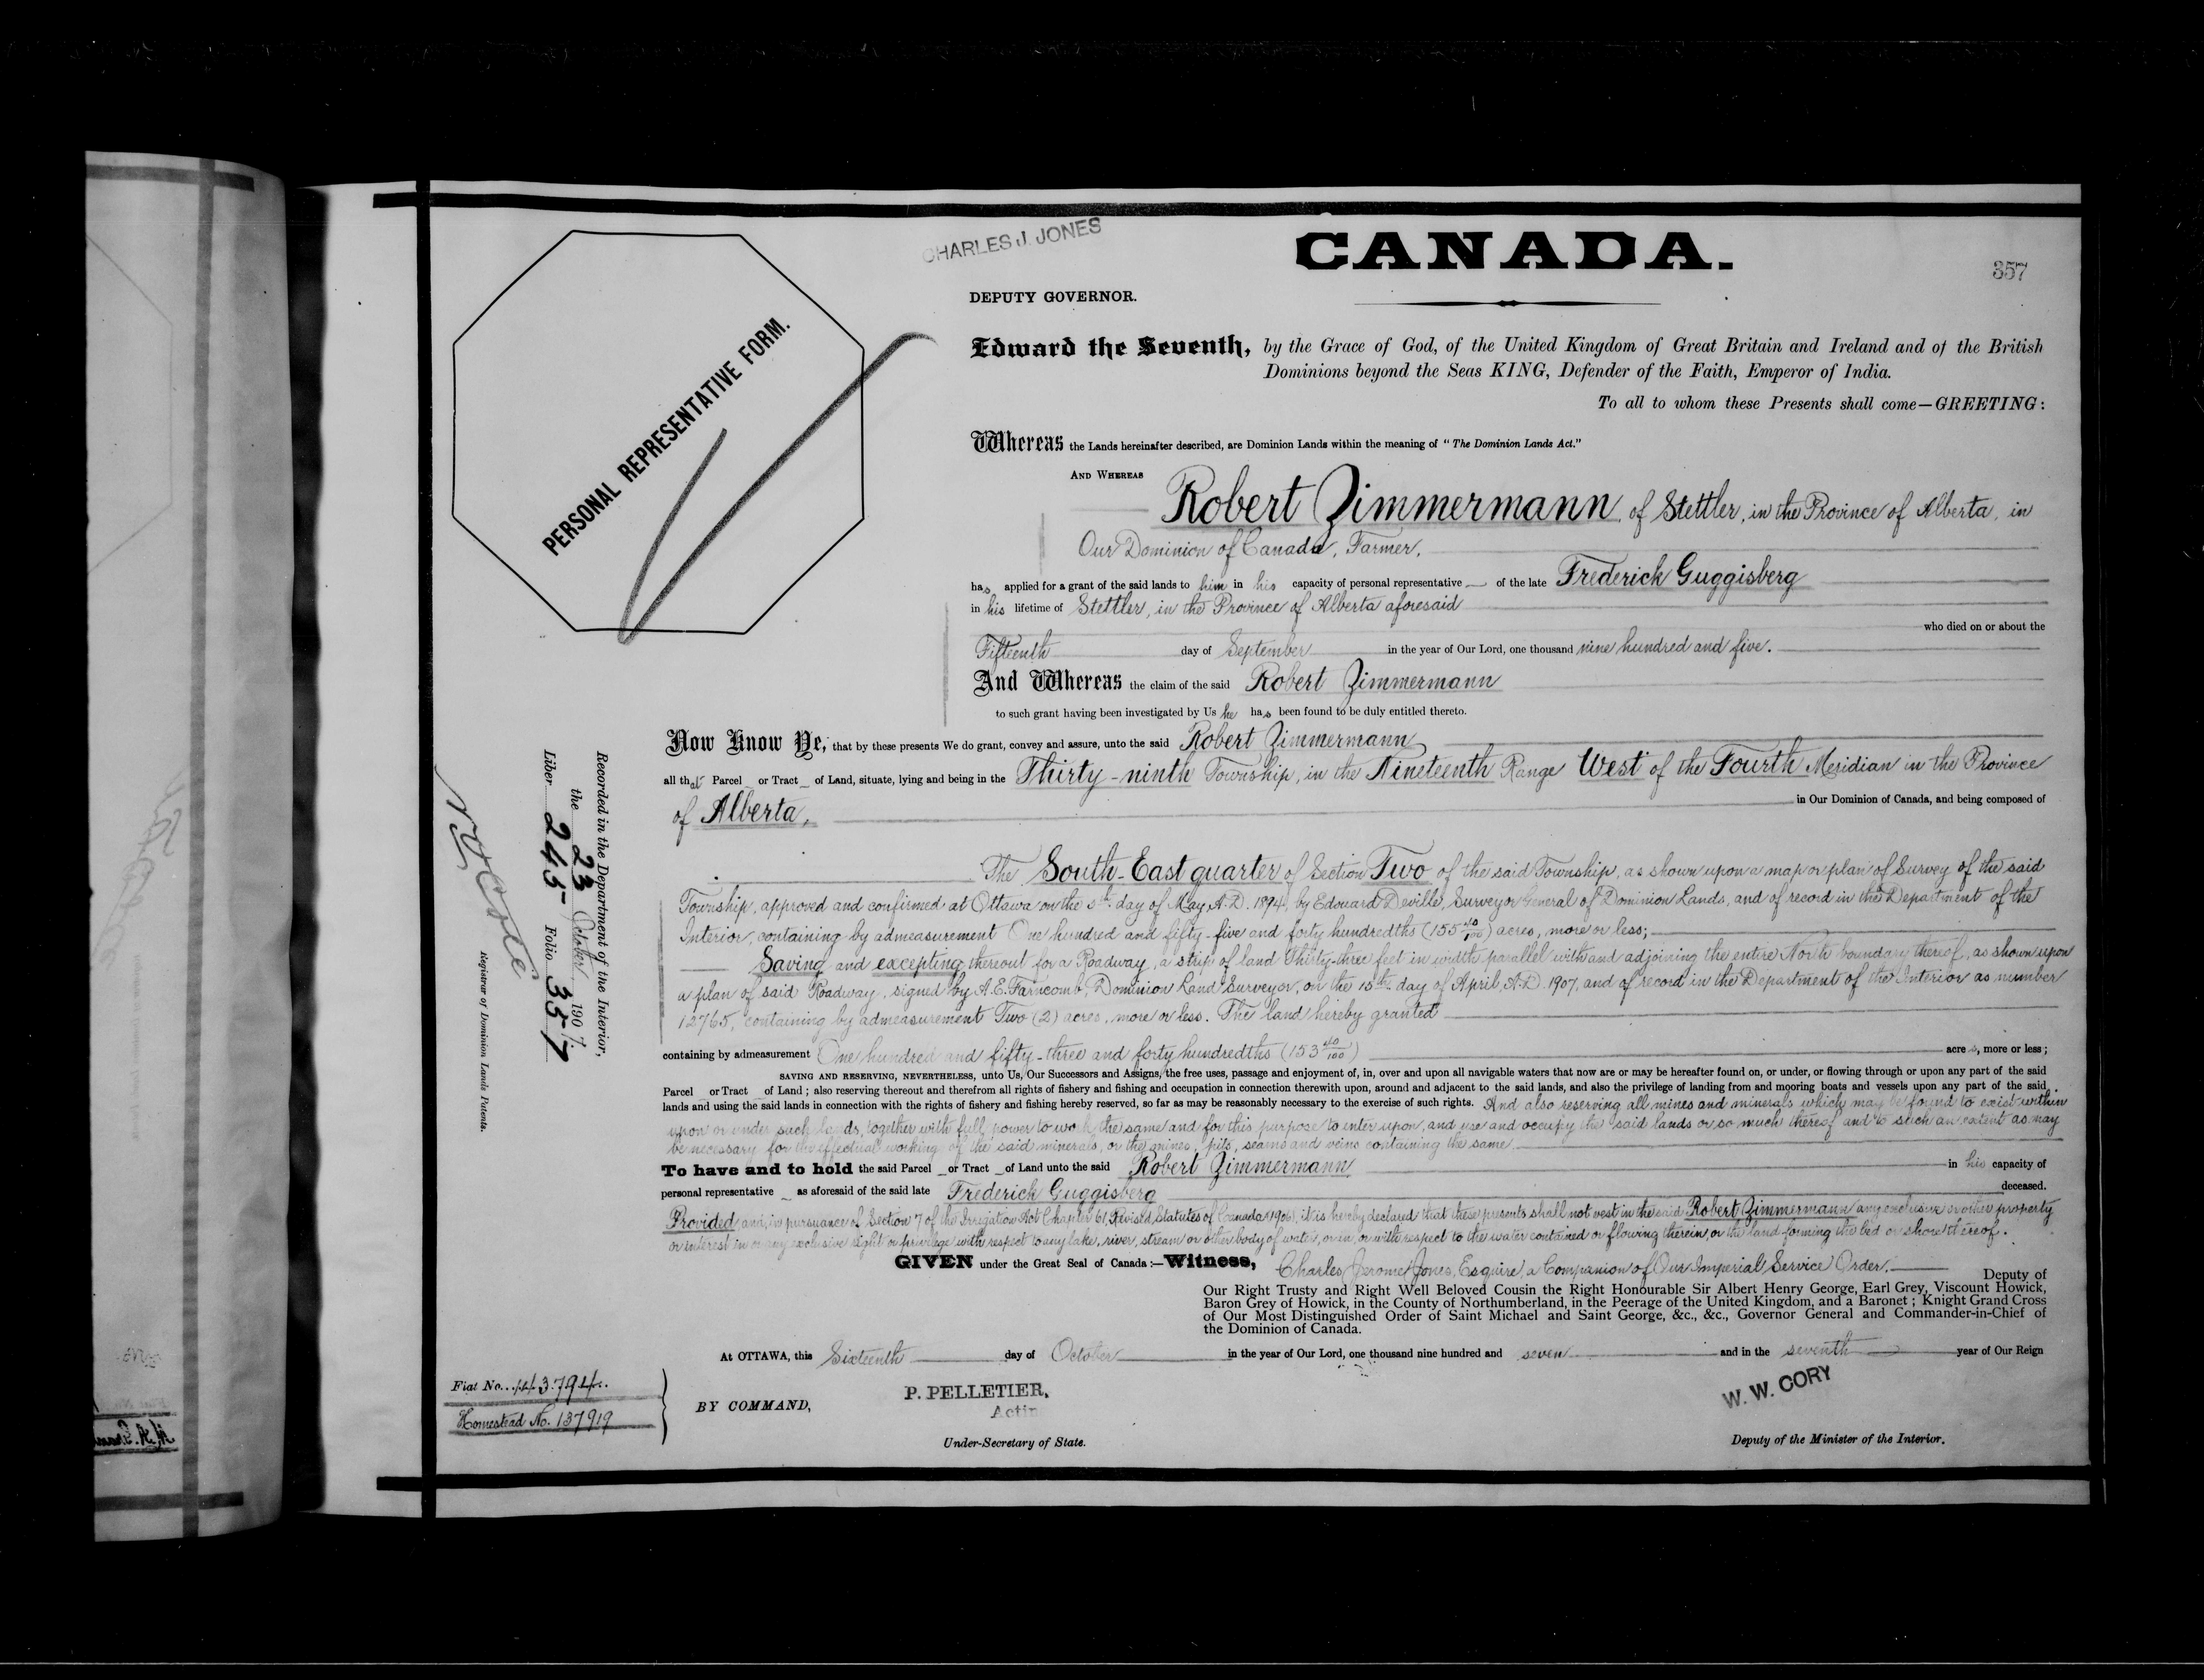 CHARLES J. JONES
CANADA.
357
DEPUTY GOVERNOR.
PERSONAL REPRESENTATIVE FORM.
Edward the Seventh, by the Grace of God, of the United Kingdom of Great Britain and Ireland and of the British
Dominions beyond the Seas KING, Defender of the Faith, Emperor of India.
To all to whom these Presents shall come—GREETING:
Whereas the Lands hereinafter described, are Dominion Lands within the meaning of "The Dominion Lands Act."
AND WHEREAS
Robert Zimmermann, of Stettler, in the Province of Alberta, in
Our Dominion of Canada, Farmer,
has applied for a grant of the said lands to him in his capacity of personal representative of the late Frederick Guggisberg
in his lifetime of Stettler, in the Province of Alberta aforesaid
who died on or about the
Fifteenth day of September in the year of Our Lord, one thousand nine hundred and five.
And Whereas the claim of the said Robert Zimmermann
to such grant having been investigated by Us he has been found to be duly entitled thereto.
Now Know Ye, that by these presents We do grant, convey and assure, unto the said Robert Zimmermann,
all that Parcel or Tract of Land, situate, lying and being in the Thirty-ninth Township, in the Nineteenth Range West of the Fourth Meridian in the Province
of Alberta,
in Our Dominion of Canada, and being composed of
The South-East quarter of Section Two of the said Township, as shown upon a map or plan of Survey of the said
Township, approved and confirmed at Ottawa on the 5th day of May, A.D. 1894, by Edouard Deville, Surveyor General of Dominion Lands, and of record in the Department of the
Interior, containing by admeasurement One hundred and fifty-five and forty hundredths (155 40/100) acres, more or less;
Saving and excepting thereout for a Roadway, a strip of land Thirty-three feet in width parallel with and adjoining the entire North boundary thereof, as shown upon
a plan of said Roadway, signed by A.E. Farncomb, Dominion Land Surveyor, on the 15th day of April, A.D. 1907, and of record in the Department of the Interior as number
12765, containing by admeasurement Two (2) acres, more or less. The land hereby granted
containing by admeasurement One hundred and fifty-three and forty hundredths (153 40/100) acres, more or less;
SAVING AND RESERVING, NEVERTHELESS, unto Us, Our Successors and Assigns, the free uses, passage and enjoyment of, in, over and upon all navigable waters that now are or may be hereafter found on, or under, or flowing through or upon any part of the said
Parcel or Tract of Land; also reserving thereout and therefrom all rights of fishery and fishing and occupation in connection therewith upon, around and adjacent to the said lands, and also the privilege of landing from and mooring boats and vessels upon any part of the said
lands and using the said lands in connection with the rights of fishery and fishing hereby reserved, so far as may be reasonably necessary to the exercise of such rights. And also reserving all mines and minerals which may be found to exist within
upon or under such lands, together with full power to work the same and for this purpose to enter upon, and use and occupy the said lands or so much thereof and to such an extent as may
be necessary for the effectual working of the said minerals, or the mines, pits, seams and veins containing the same
To have and to hold the said Parcel or Tract of Land unto the said Robert Zimmermann in his capacity of
personal representative as aforesaid of the said late Frederick Guggisberg deceased.
Provided and in pursuance of Section 7 of the Irrigation Act Chapter 61, Revised Statutes of Canada 1906, it is hereby declared that these presents shall not vest in the said Robert Zimmermann any exclusive or other property
or interest in or any exclusive right or privilege with respect to any lake, river, stream or other body of water, or in, or with respect to the water contained or flowing therein, or the land forming the bed or shore thereof.
GIVEN under the Great Seal of Canada:—Witness, Charles Jerome Jones, Esquire, a Companion of Our Imperial Service Order, Deputy of
Our Right Trusty and Right Well Beloved Cousin the Right Honourable Sir Albert Henry George, Earl Grey, Viscount Howick,
Baron Grey of Howick, in the County of Northumberland, in the Peerage of the United Kingdom, and a Baronet; Knight Grand Cross
of Our Most Distinguished Order of Saint Michael and Saint George, &c., &c., Governor General and Commander-in-Chief of
the Dominion of Canada.
At OTTAWA, this Sixteenth day of October in the year of Our Lord, one thousand nine hundred and seven and in the seventh year of Our Reign
BY COMMAND,
P. PELLETIER,
Actin
Under-Secretary of State.
W. W. CORY
Deputy of the Minister of the Interior.
Fiat No. 143794.
Homestead No. 137919
Recorded in the Department of the Interior,
the 23 October 1907.
Liber 245 Folio 357
Registrar of Dominion Lands Patents.